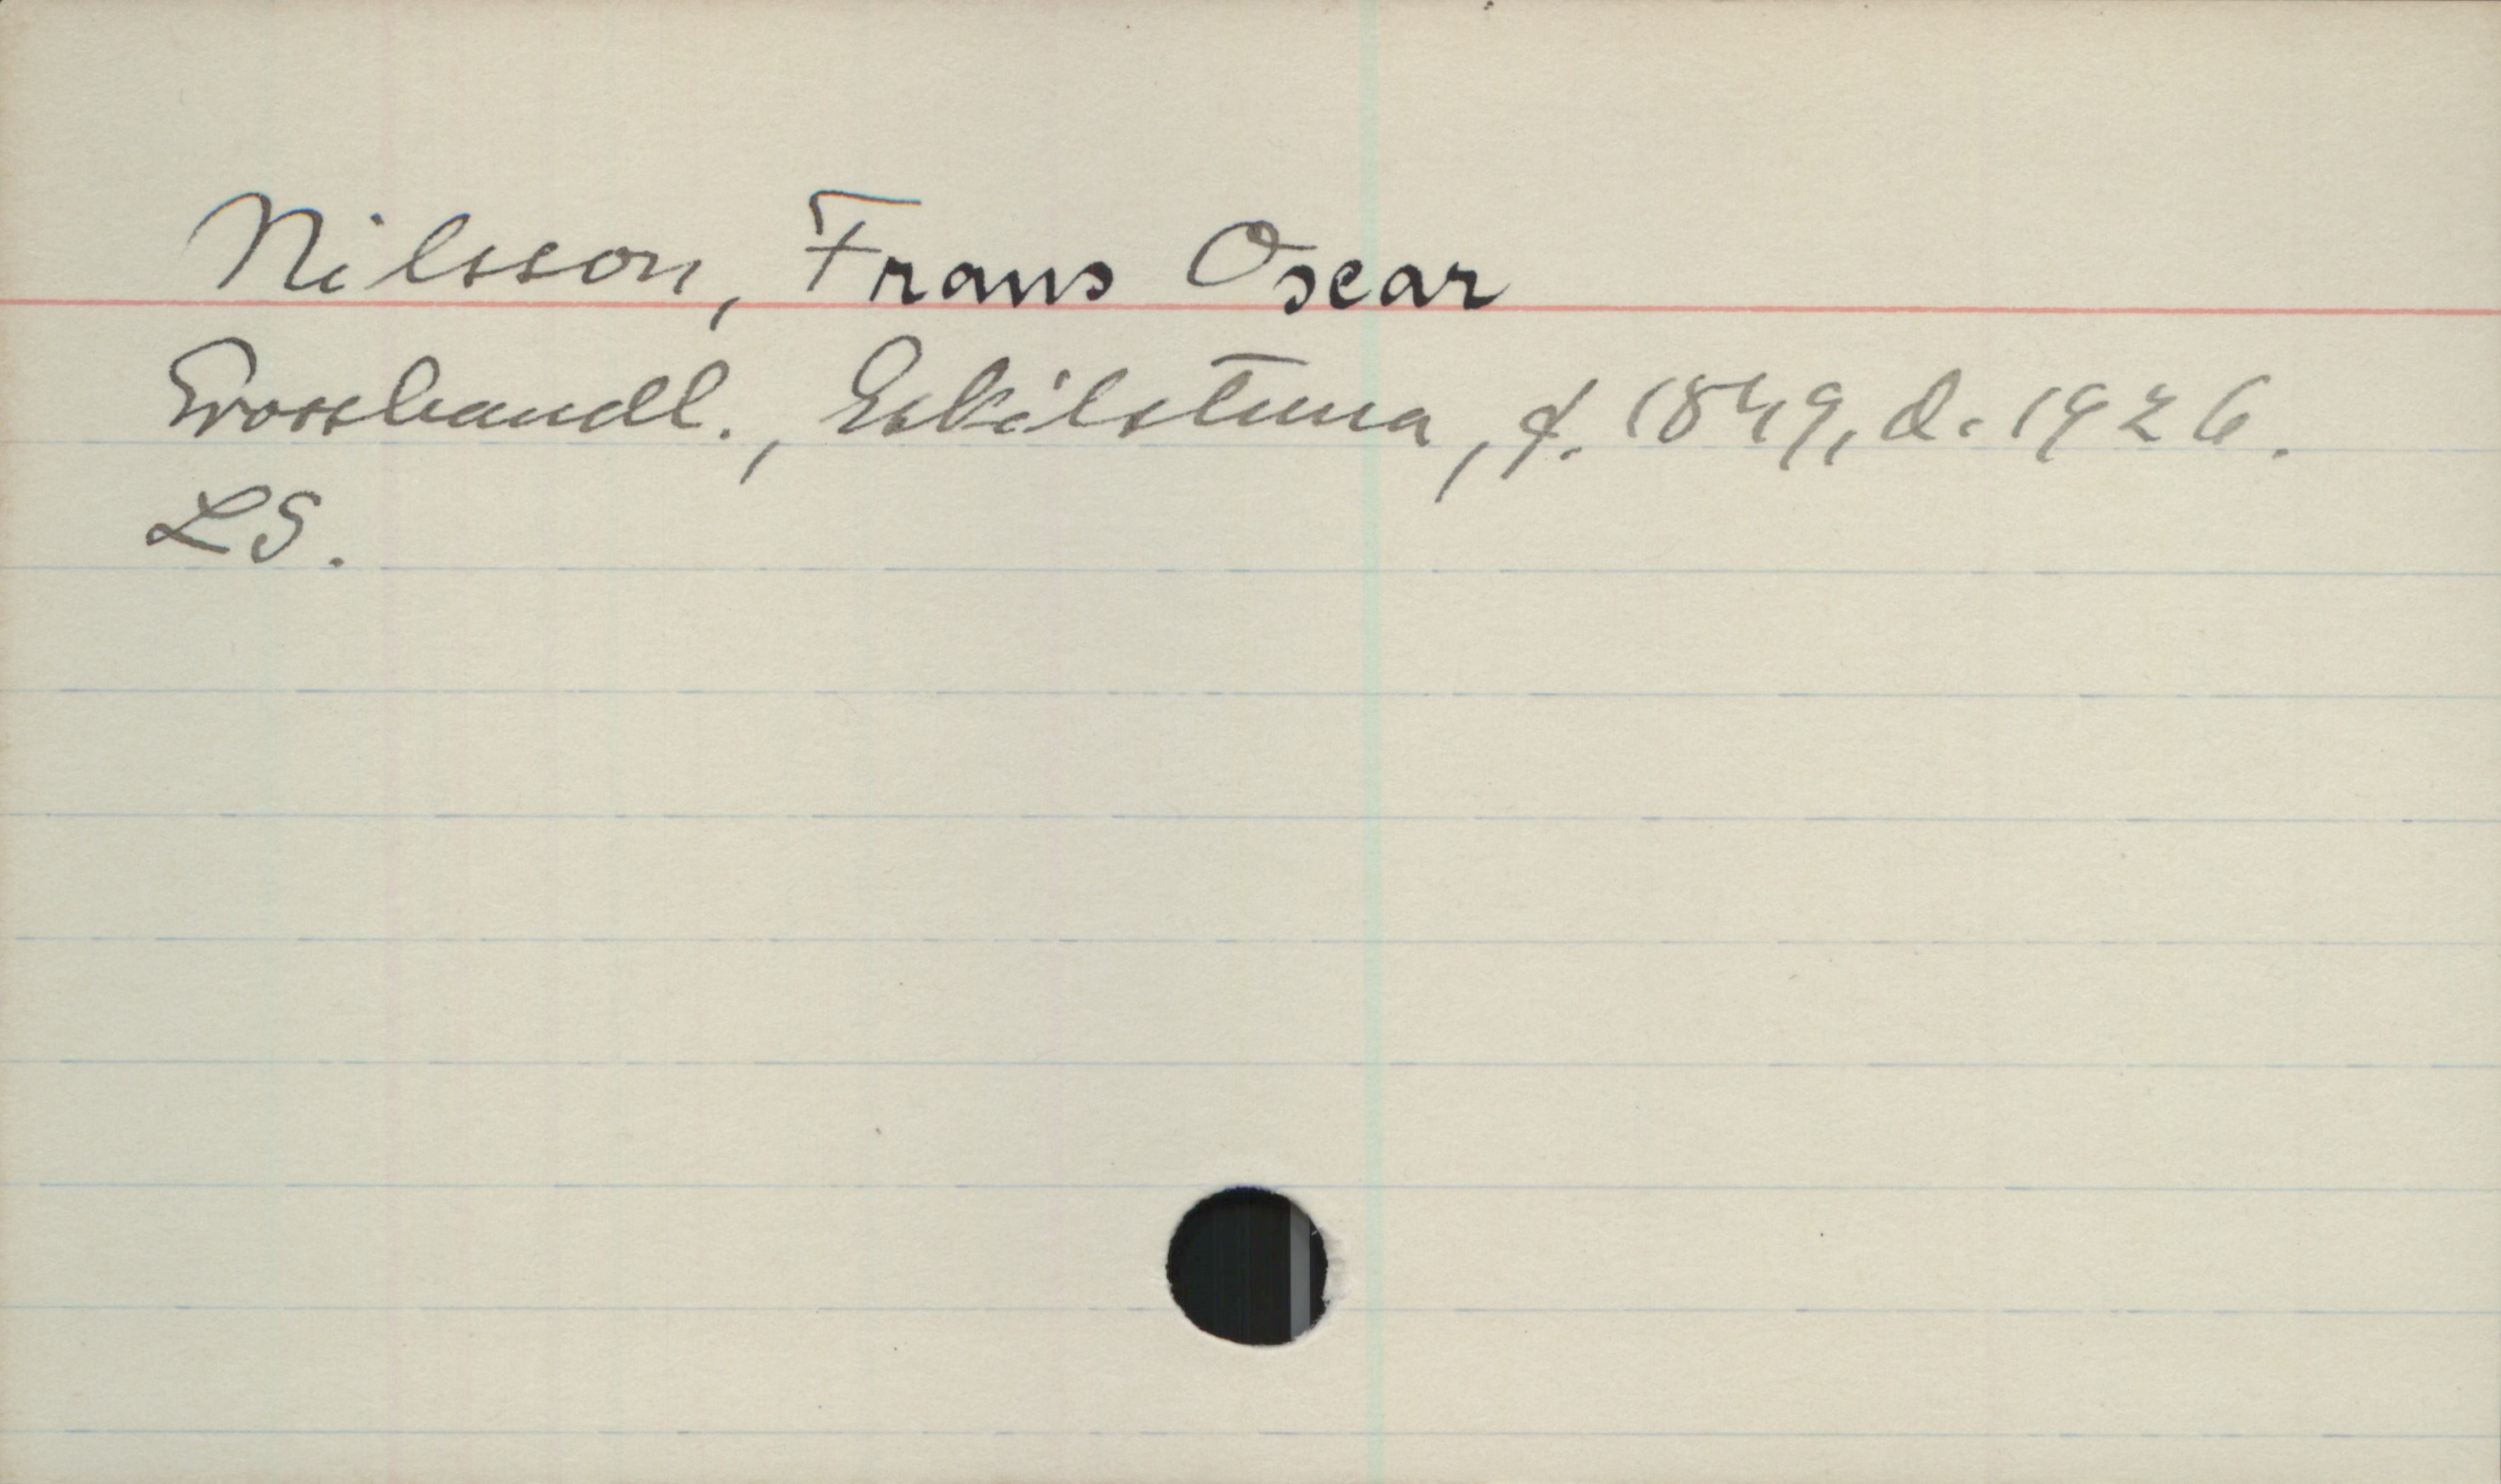 Nilsson, Frans Oscar
Grosshandl., Eskilstuna, f. 1849, d. 1926.
LS.